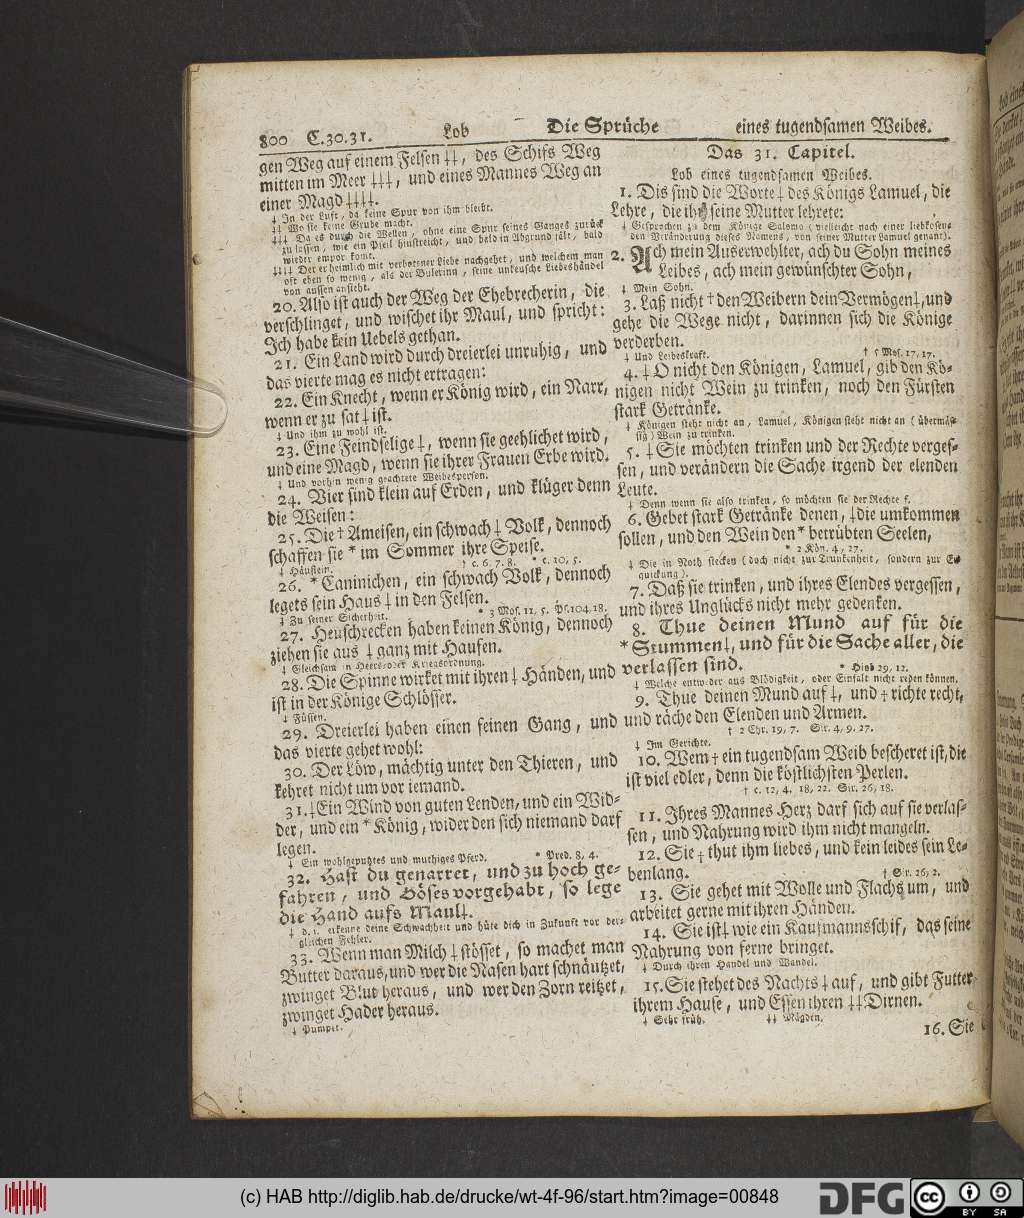 800 C.30.31. Lob Die Sprüche eines tugendsamen Weibes.
gen Weg auf einem Felsen ‡‡, des Schifs Weg
mitten im Meer ‡‡‡, und eines Mannes Weg an
einer Magd ‡‡‡‡.
‡ In der Luft, da keine Spur von ihm bleibt.
‡‡ Wo sie keine Grube macht.
‡‡‡ Da es durch die Wellen, ohne eine Spur seines Ganges zurück
zu lassen, wie ein Pfeil hinstreicht, und bald in Abgrund fält, bald
wieder empor komt.
‡‡‡‡ Der er heimlich mit verbotener Liebe nachgehet, und welchem man
oft eben so wenig, als der Bulerinn, seine unkeusche Liebeshändel
von aussen ansieht.
20. Also ist auch der Weg der Ehebrecherin, die
verschlinget, und wischet ihr Maul, und spricht:
Ich habe kein Uebels gethan.
21. Ein Land wird durch dreierlei unruhig, und
das vierte mag es nicht ertragen:
22. Ein Knecht, wenn er König wird, ein Narr,
wenn er zu sat ‡ ist.
‡ Und ihm zu wohl ist.
23. Eine Feindselige ‡, wenn sie geehlichet wird,
und eine Magd, wenn sie ihrer Frauen Erbe wird.
‡ Und vorhin wenig geachtete Weibesperson.
24. Vier sind klein auf Erden, und klüger denn
die Weisen:
25. Die † Ameisen, ein schwach ‡ Volk, dennoch
schaffen sie * im Sommer ihre Speise.
‡ Häuflein. † c. 6, 7. 8. * c. 10, 5.
26. * Caninichen, ein schwach Volk, dennoch
legets sein Haus ‡ in den Felsen.
‡ Zu seiner Sicherheit. * 3 Mos. 11, 5. Ps. 104, 18.
27. Heuschrecken haben keinen König, dennoch
ziehen sie aus ‡ ganz mit Haufen.
‡ Gleichsam in Heers- oder Kriegsordnung.
28. Die Spinne wirket mit ihren ‡ Händen, und
ist in der Könige Schlösser.
‡ Füssen.
29. Dreierlei haben einen feinen Gang, und
das vierte gehet wohl:
30. Der Löw, mächtig unter den Thieren, und
kehret nicht um vor jemand.
31. ‡ Ein Wind von guten Lenden, und ein Wid-
der, und ein * König, wider den sich niemand darf
legen.
‡ Ein wohlgeputztes und muthiges Pferd. * Pred. 8, 4.
32. Hast du genarret, und zu hoch ge-
fahren, und Böses vorgehabt, so lege
die Hand aufs Maul ‡.
‡ d. i. erkenne deine Schwachheit und hüte dich in Zukunft vor der-
gleichen Fehler.
33. Wenn man Milch ‡ stösset, so machet man
Butter daraus, und wer die Nasen hart schnäutzet,
zwinget Blut heraus, und wer den Zorn reitzet,
zwinget Hader heraus.
‡ Pumpet.
Das 31. Capitel.
Lob eines tugendsamen Weibes.
1. Dis sind die Worte ‡ des Königs Lamuel, die
Lehre, die ihn seine Mutter lehrete:
‡ Gesprochen zu dem Könige Salomo (vielleicht nach einer liebkosen-
den Veränderung dieses Namens, von seiner Mutter Lamuel genant).
2. Ach mein Auserwehlter, ach du Sohn meines
Leibes, ach mein gewünschter Sohn,
‡ Mein Sohn.
3. Laß nicht † den Weibern dein Vermögen ‡, und
gehe die Wege nicht, darinnen sich die Könige
verderben.
‡ Und Leibeskraft. † 5 Mos. 17, 17.
4. ‡ O nicht den Königen, Lamuel, gib den Kö-
nigen nicht Wein zu trinken, noch den Fürsten
stark Getränke.
‡ Königen steht nicht an, Lamuel, Königen steht nicht an (übermäs-
sig) Wein zu trinken.
5. ‡ Sie möchten trinken und der Rechte verges-
sen, und verändern die Sache irgend der elenden
Leute.
‡ Denn wenn sie also trinken, so möchten sie der Rechte f.
6. Gebet stark Getränke denen, ‡ die umkommen
sollen, und den Wein den * betrübten Seelen,
* 2 Kön. 4, 27.
‡ Die in Noth stecken (doch nicht zur Trunkenheit, sondern zur Er-
quickung).
7. Daß sie trinken, und ihres Elendes vergessen,
und ihres Unglücks nicht mehr gedenken.
8. Thue deinen Mund auf für die
* Stummen ‡, und für die Sache aller, die
verlassen sind. * Hiob 29, 12.
‡ Welche entweder aus Blödigkeit, oder Einfalt nicht reden können.
9. Thue deinen Mund auf ‡, und † richte recht,
und räche den Elenden und Armen.
† 2 Chr. 19, 7. Sir. 4, 9. 27.
‡ Im Gerichte.
10. Wem † ein tugendsam Weib bescheret ist, die
ist viel edler, denn die köstlichsten Perlen.
† c. 12, 4. 18, 22. Sir. 26, 18.
11. Ihres Mannes Herz darf sich auf sie verlas-
sen, und Nahrung wird ihm nicht mangeln.
12. Sie † thut ihm liebes, und kein leides sein Le-
benlang. † Sir. 26, 2.
13. Sie gehet mit Wolle und Flachs um, und
arbeitet gerne mit ihren Händen.
14. Sie ist ‡ wie ein Kaufmannsschif, das seine
Nahrung von ferne bringet.
‡ Durch ihren Handel und Wandel.
15. Sie stehet des Nachts ‡ auf, und gibt Futter
ihrem Hause, und Essen ihren ‡‡ Dirnen.
‡ Sehr früh. ‡‡ Mägden.
16. Sie
(c) HAB http://diglib.hab.de/drucke/wt-4f-96/start.htm?image=00848
DFG
cc BY SA